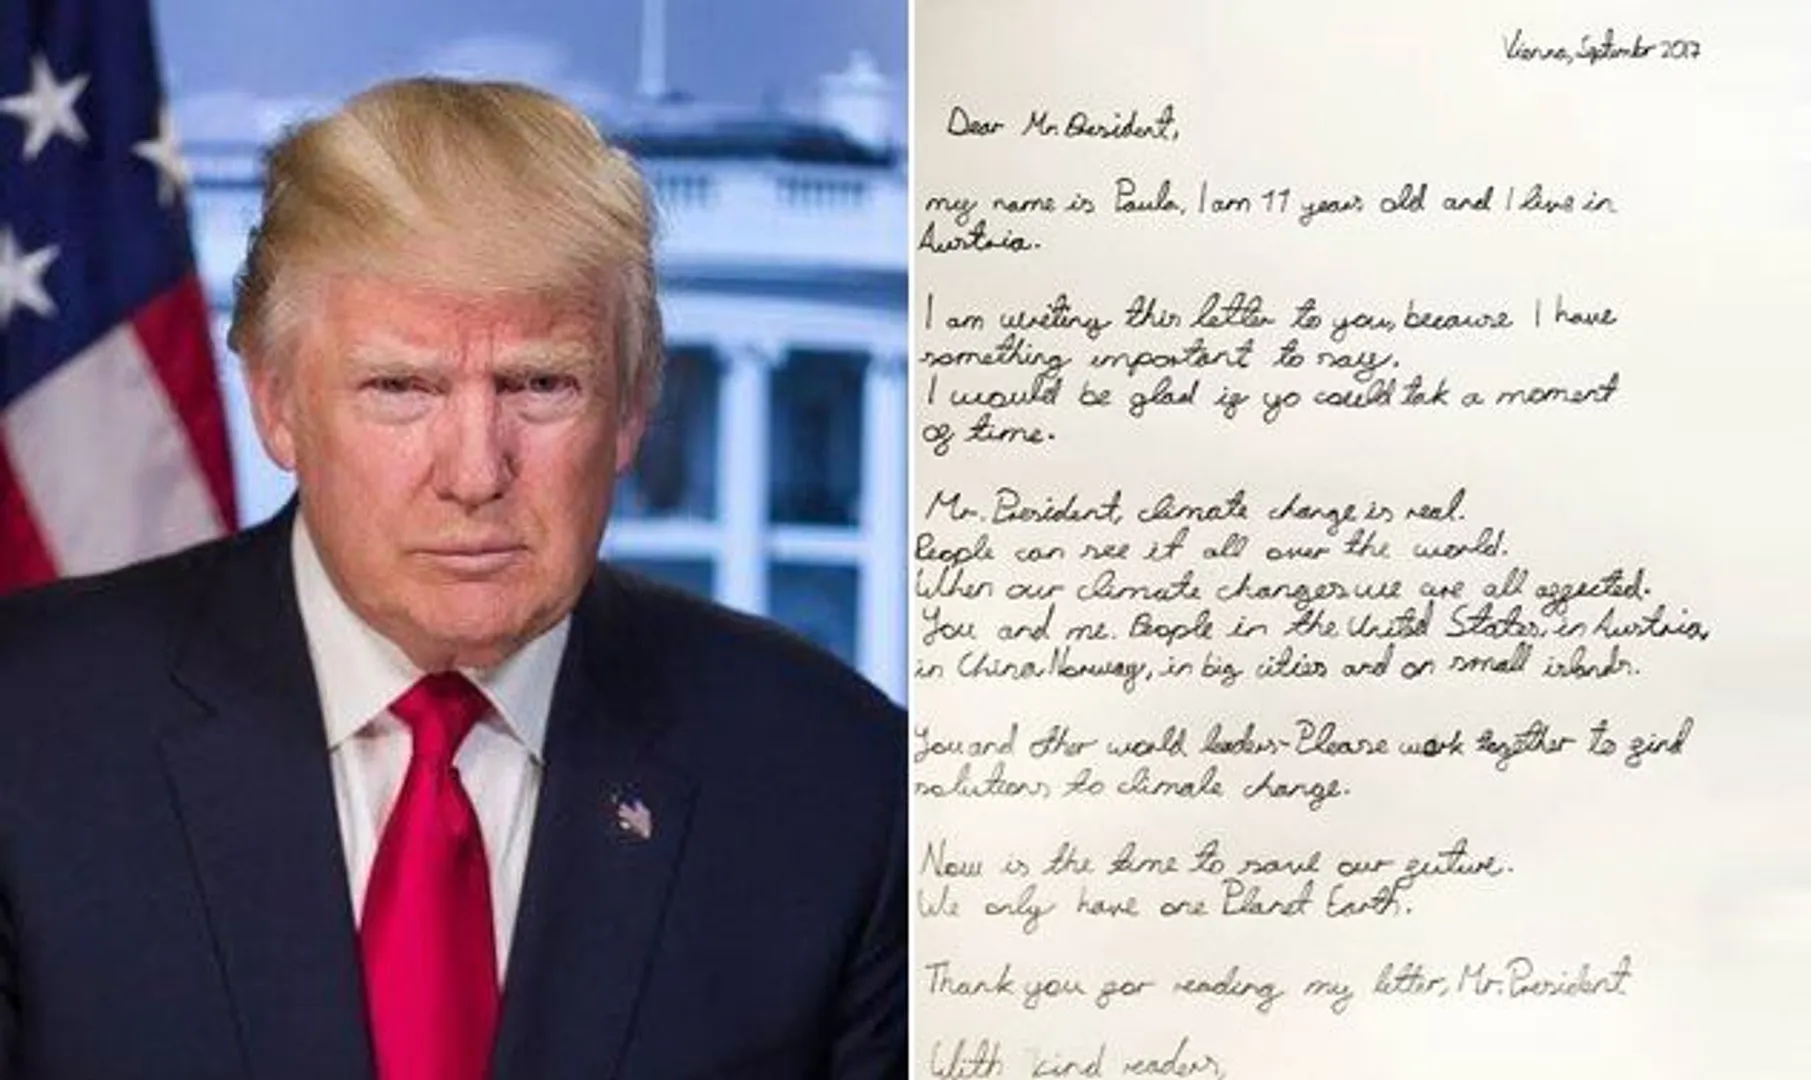 Vienna, September 2017
Dear Mr. President,
my name is Paula, I am 11 years old and I live in
Austria.
I am writing this letter to you, because I have
something important to say.
I would be glad if yo could tak a moment
of time.
Mr. President, climate change is real.
People can see it all over the world.
When our climate changes we are all affected.
You and me. People in the United States, in Austria,
in China, Norway, in big cities and on small islands.
You and other world leaders-Please work together to find
solutions to climate change.
Now is the time to save our future.
We only have one Planet Earth.
Thank you for reading my letter, Mr. President
With kind readers,